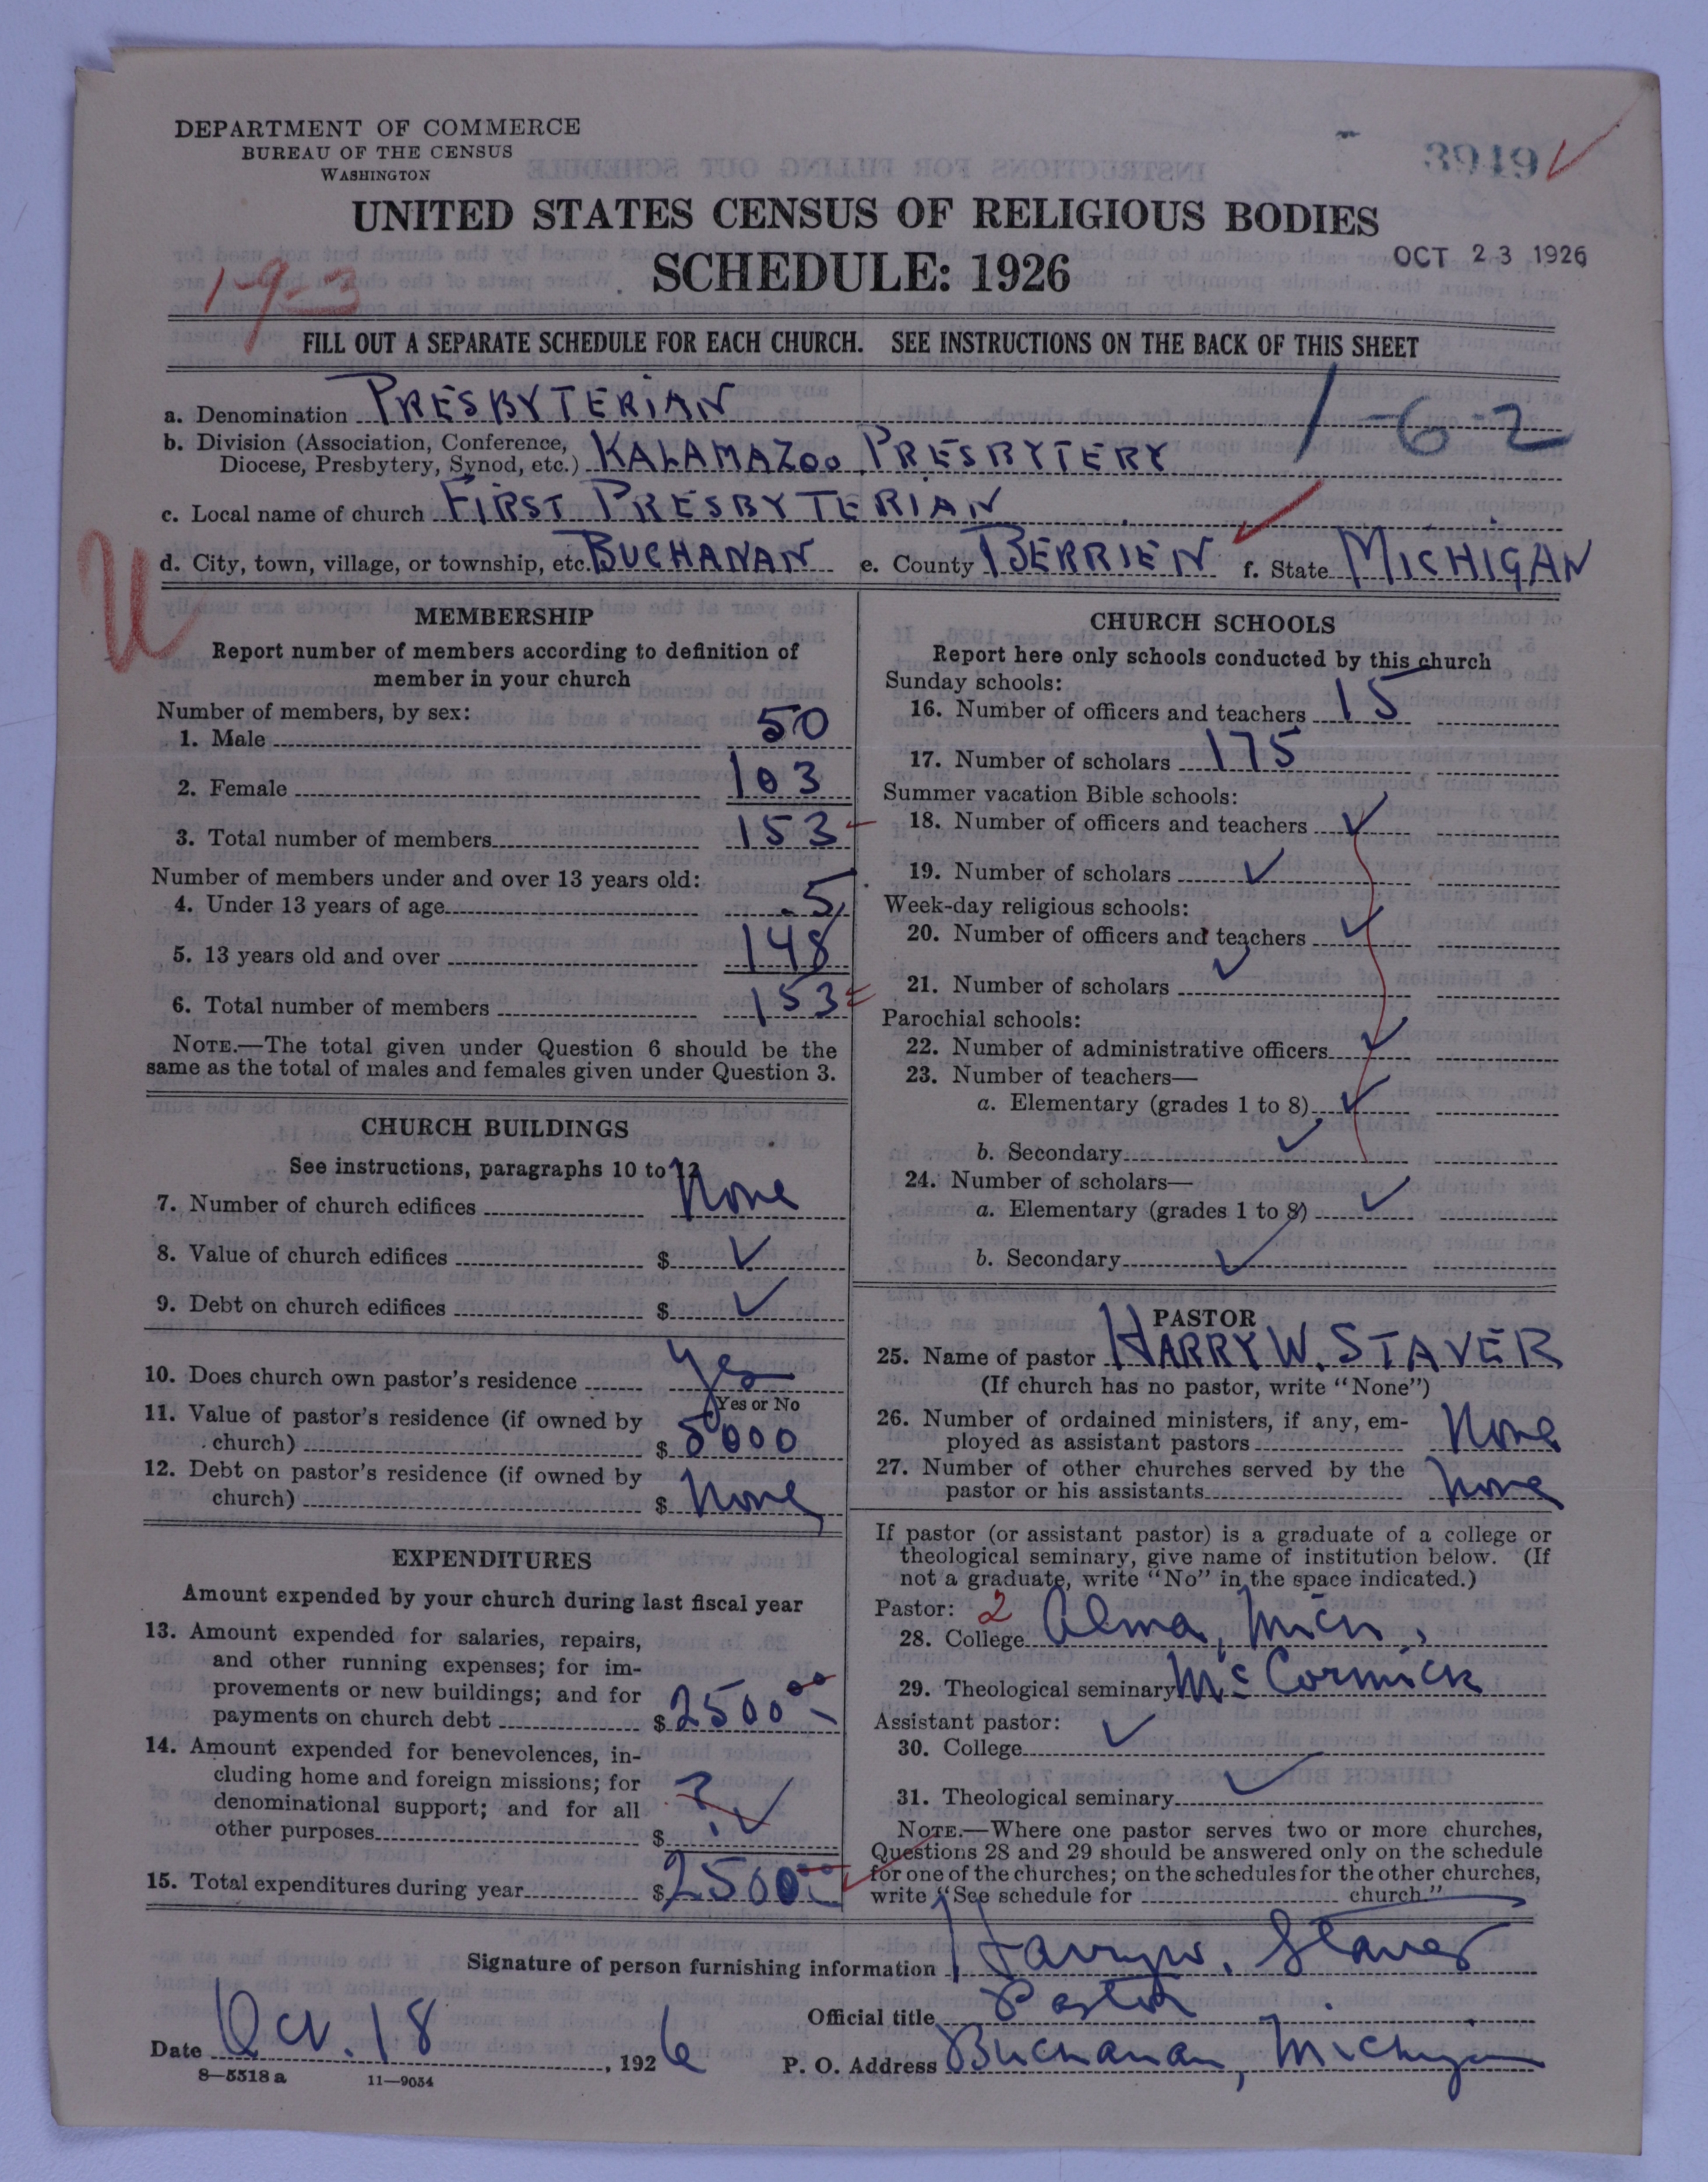 DEPARTMENT OF COMMERCE
BUREAU OF THE CENSUS
WASHINGTON
3949
UNITED STATES CENSUS OF RELIGIOUS BODIES
SCHEDULE: 1926
OCT 23 1926
1-9-3
FILL OUT A SEPARATE SCHEDULE FOR EACH CHURCH. SEE INSTRUCTIONS ON THE BACK OF THIS SHEET
1-6-2
a. Denomination PRESBYTERIAN
b. Division (Association, Conference,
Diocese, Presbytery, Synod, etc.) KALAMAZOO PRESBYTERY
c. Local name of church FIRST PRESBYTERIAN
U
d. City, town, village, or township, etc. BUCHANAN e. County BERRIEN f. State MICHIGAN
MEMBERSHIP
Report number of members according to definition of
member in your church
Number of members, by sex:
1. Male 50
2. Female 103
3. Total number of members 153
Number of members under and over 13 years old:
4. Under 13 years of age 5
5. 13 years old and over 148
6. Total number of members 153
NOTE.—The total given under Question 6 should be the
same as the total of males and females given under Question 3.
CHURCH BUILDINGS
See instructions, paragraphs 10 to 12
7. Number of church edifices None
8. Value of church edifices $ ✓
9. Debt on church edifices $ ✓
10. Does church own pastor's residence Yes
Yes or No
11. Value of pastor's residence (if owned by
church) $ 5000
12. Debt on pastor's residence (if owned by
church) $ None
EXPENDITURES
Amount expended by your church during last fiscal year
13. Amount expended for salaries, repairs,
and other running expenses; for im-
provements or new buildings; and for
payments on church debt $ 2500 00
14. Amount expended for benevolences, in-
cluding home and foreign missions; for
denominational support; and for all
other purposes $ ? ✓
15. Total expenditures during year $ 2500 00
CHURCH SCHOOLS
Report here only schools conducted by this church
Sunday schools:
16. Number of officers and teachers 15
17. Number of scholars 175
Summer vacation Bible schools:
18. Number of officers and teachers ✓
19. Number of scholars ✓
Week-day religious schools:
20. Number of officers and teachers ✓
21. Number of scholars ✓
Parochial schools:
22. Number of administrative officers ✓
23. Number of teachers—
a. Elementary (grades 1 to 8) ✓
b. Secondary ✓
24. Number of scholars—
a. Elementary (grades 1 to 8) ✓
b. Secondary ✓
PASTOR
25. Name of pastor HARRY W. STAVER
(If church has no pastor, write "None")
26. Number of ordained ministers, if any, em-
ployed as assistant pastors None
27. Number of other churches served by the
pastor or his assistants None
If pastor (or assistant pastor) is a graduate of a college or
theological seminary, give name of institution below. (If
not a graduate, write "No" in the space indicated.)
Pastor: 2
28. College Alma, Mich.
29. Theological seminary McCormick
Assistant pastor:
30. College ✓
31. Theological seminary ✓
NOTE.—Where one pastor serves two or more churches,
Questions 28 and 29 should be answered only on the schedule
for one of the churches; on the schedules for the other churches,
write "See schedule for church."
Signature of person furnishing information Harry W. Staver
Official title Pastor
Date Oct. 18, 1926 P. O. Address Buchanan, Michigan
8—5518 a 11—9054